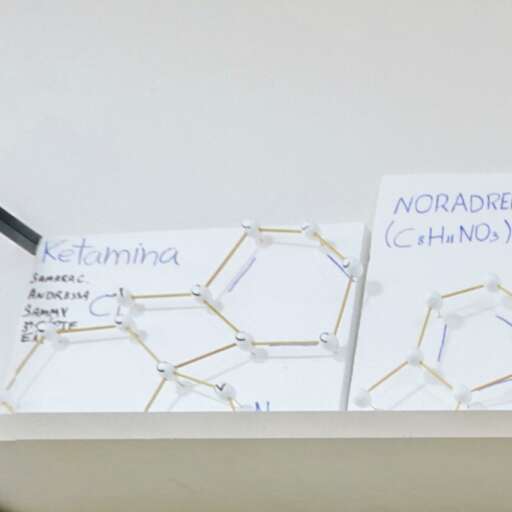 Ketamina
SAMARA C.
ANDRESSA
SAMMY
Cl
N
NORADRE
(C8H11NO3)